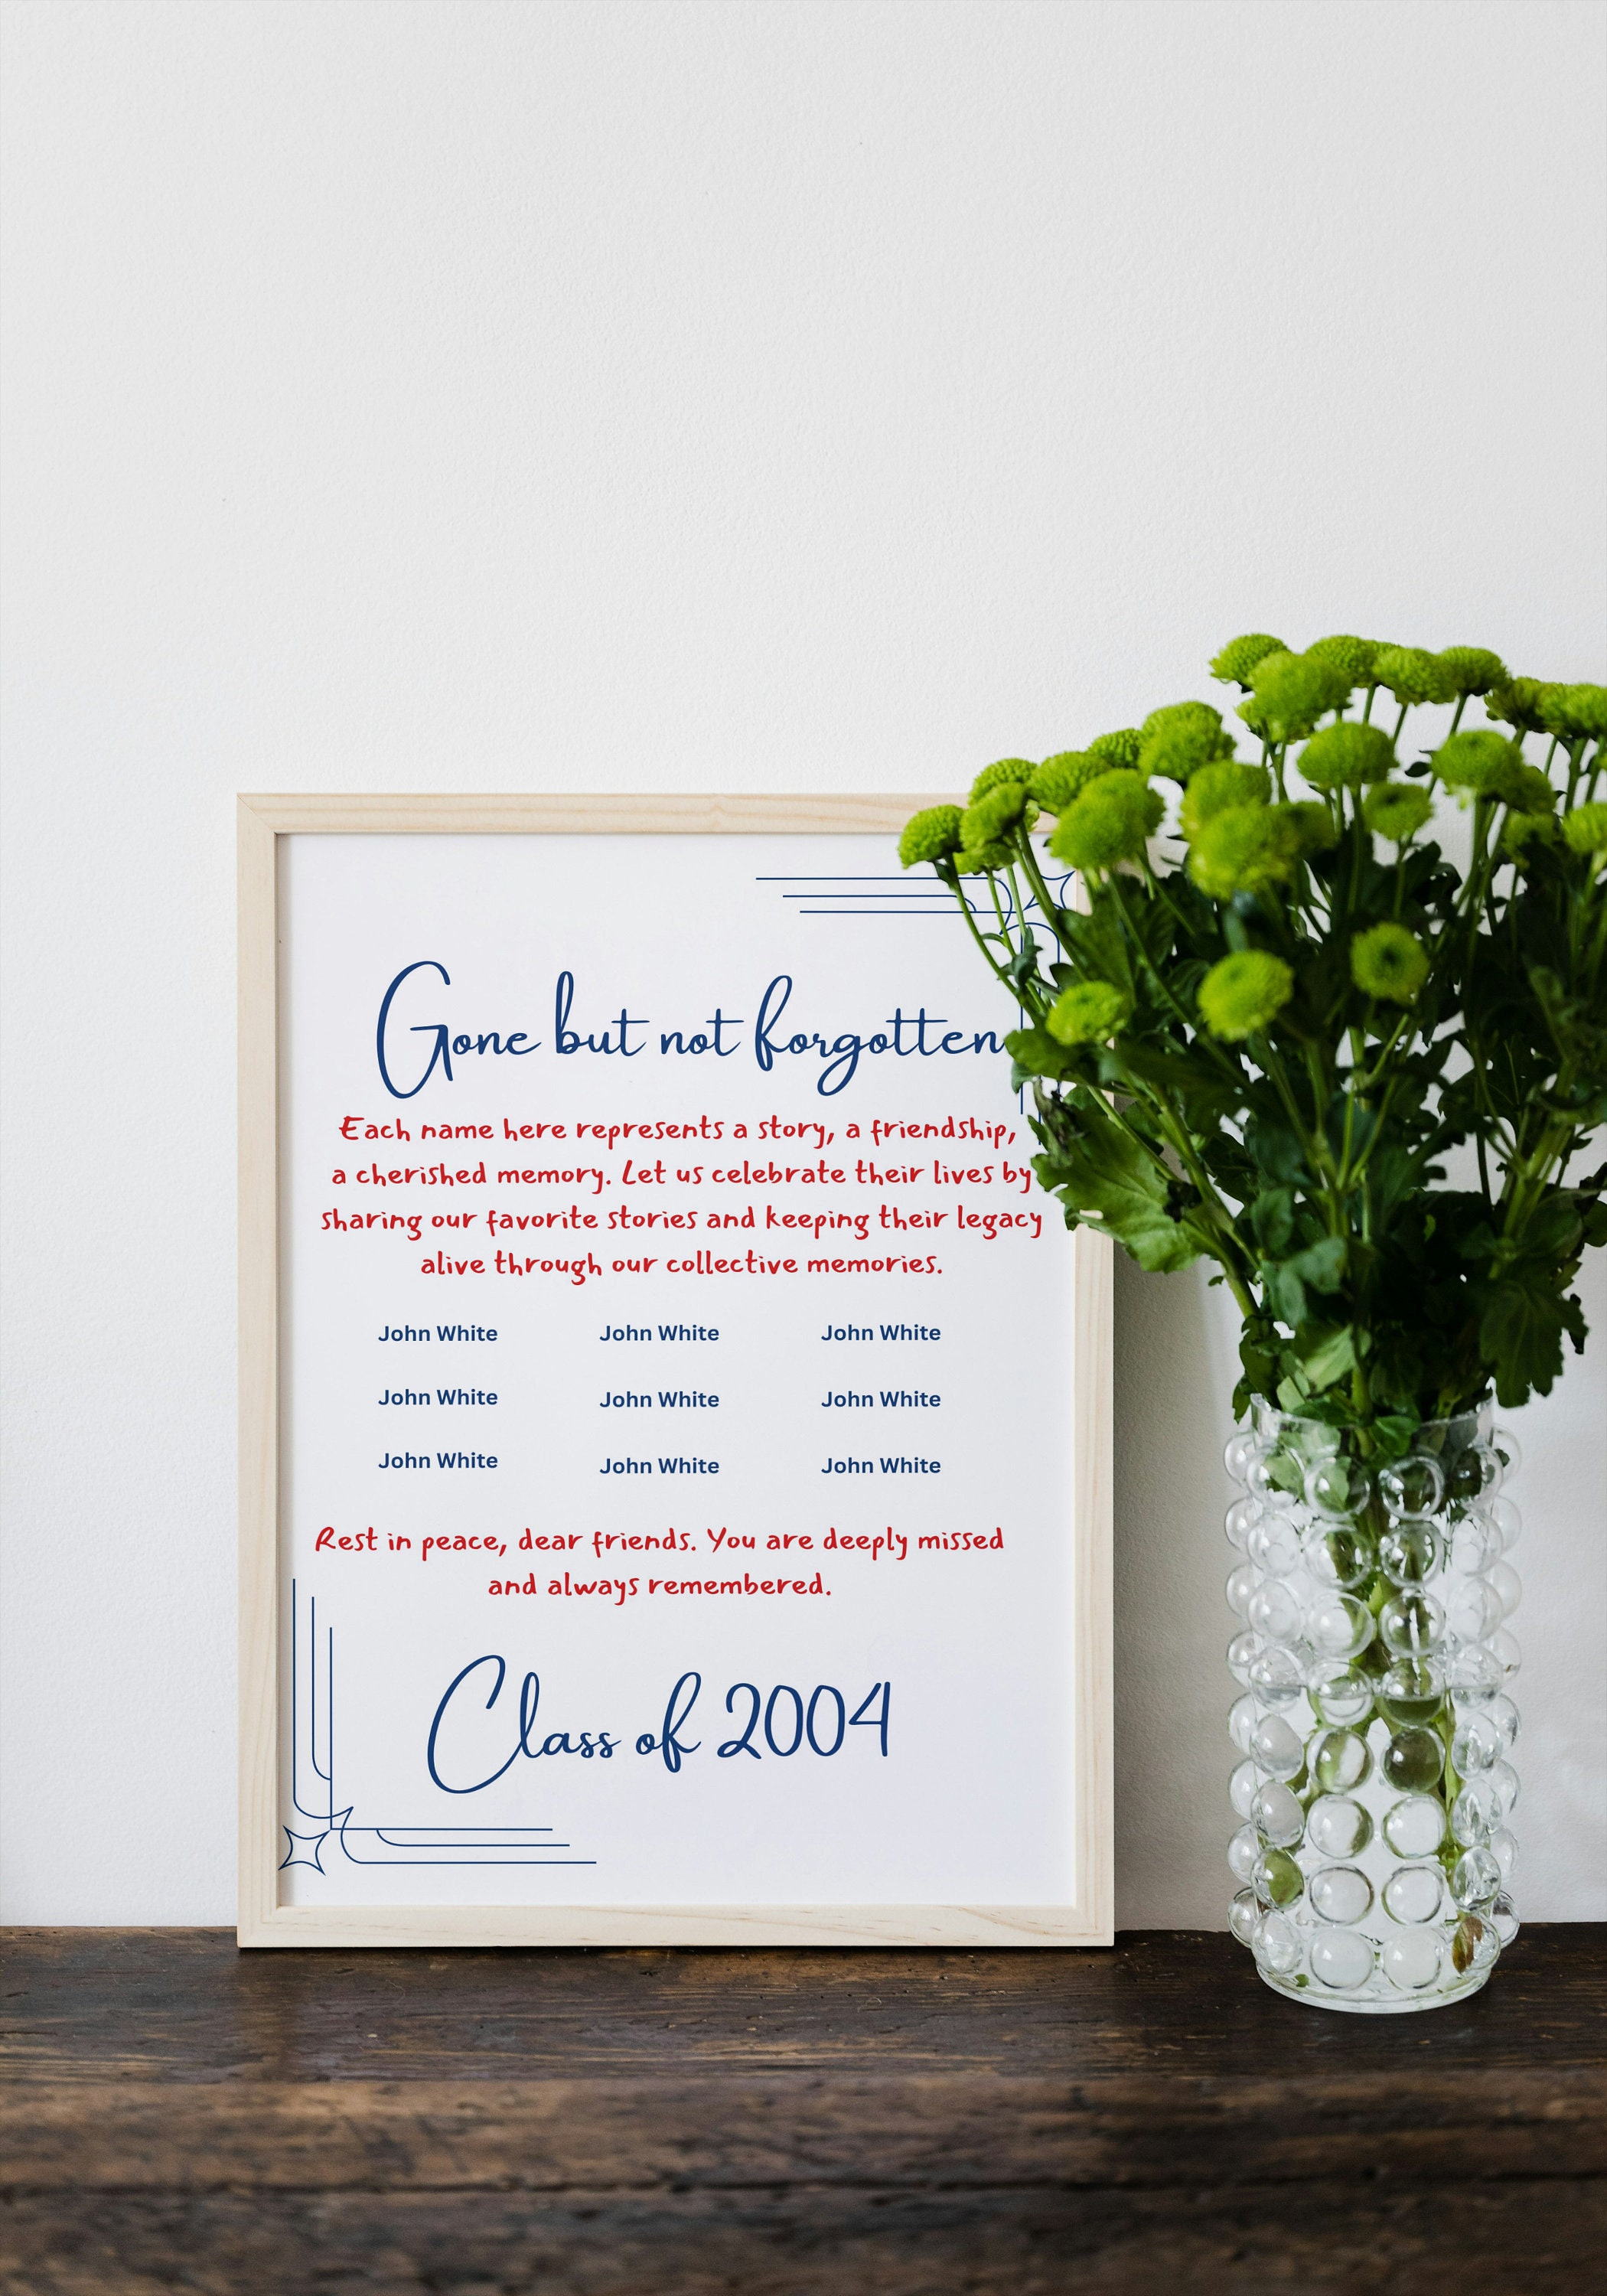 Gone but not forgotten
Each name here represents a story, a friendship,
a cherished memory. Let us celebrate their lives by
sharing our favorite stories and keeping their legacy
alive through our collective memories.
John White John White John White
John White John White John White
John White John White John White
Rest in peace, dear friends. You are deeply missed
and always remembered.
Class of 2004